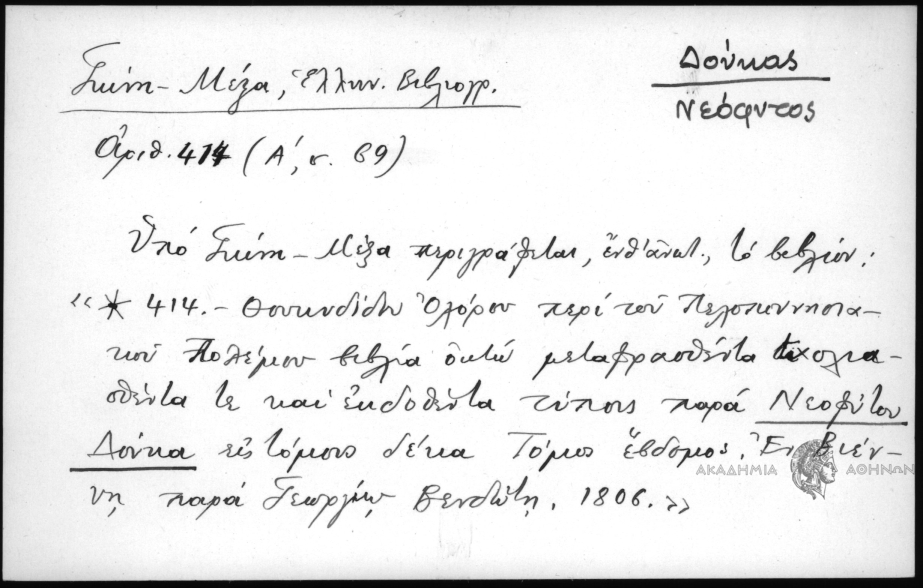 Δούκας
Νεόφυτος
Γκίνη - Μέξα, Ἑλλην. Βιβλιογρ.
Ἀριθ. 414 (Α΄, σ. 69)
Ὑπό Γκίνη - Μέξα περιγράφεται, ἔνθ' ἀνωτ., τό βιβλίον:
«* 414.- Θουκυδίδου Ὀλόρου περί τοῦ Πελοποννησια-
κοῦ Πολέμου βιβλία ὀκτώ μεταφρασθέντα σχολια-
σθέντα τε καί ἐκδοθέντα τύποις παρά Νεοφύτου
Δούκα εἰς τόμους δέκα Τόμος ἕβδομος. Ἐν Βιέν-
νῃ παρά Γεωργίῳ Βενδώτῃ. 1806.»
ΑΚΑΔΗΜΙΑ ΑΘΗΝΩΝ